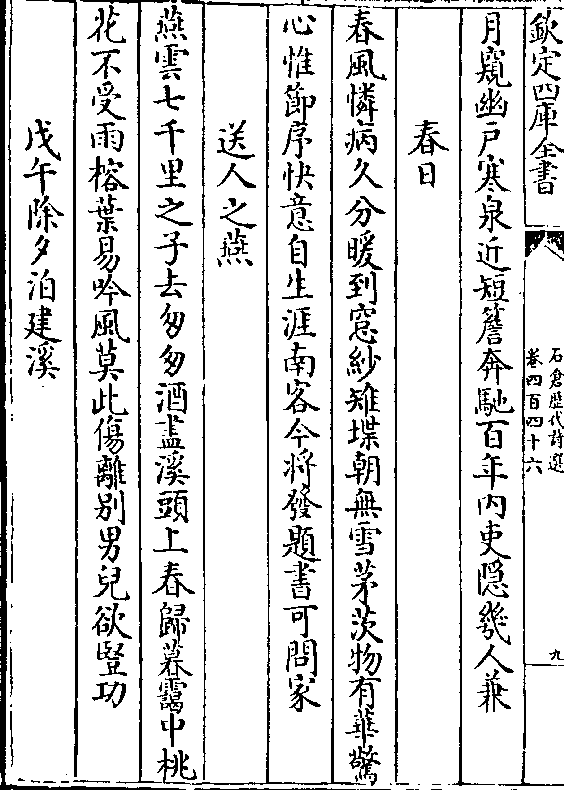 欽定四庫全書
石倉歴代詩選
卷四百四十六
九
月窺幽戸寒泉近短簷奔馳百年内吏隱幾人兼
春日
春風憐病久分暖到窓紗雉堞朝無雪茅茨物有華驚
心惟節序快意自生涯南客今將發題書可問家
送人之燕
燕雲七千里之子去匆匆酒盡溪頭上春歸暮靄中桃
花不受雨榕葉易吟風莫此傷離别男兒欲豎功
戊午除夕泊建溪